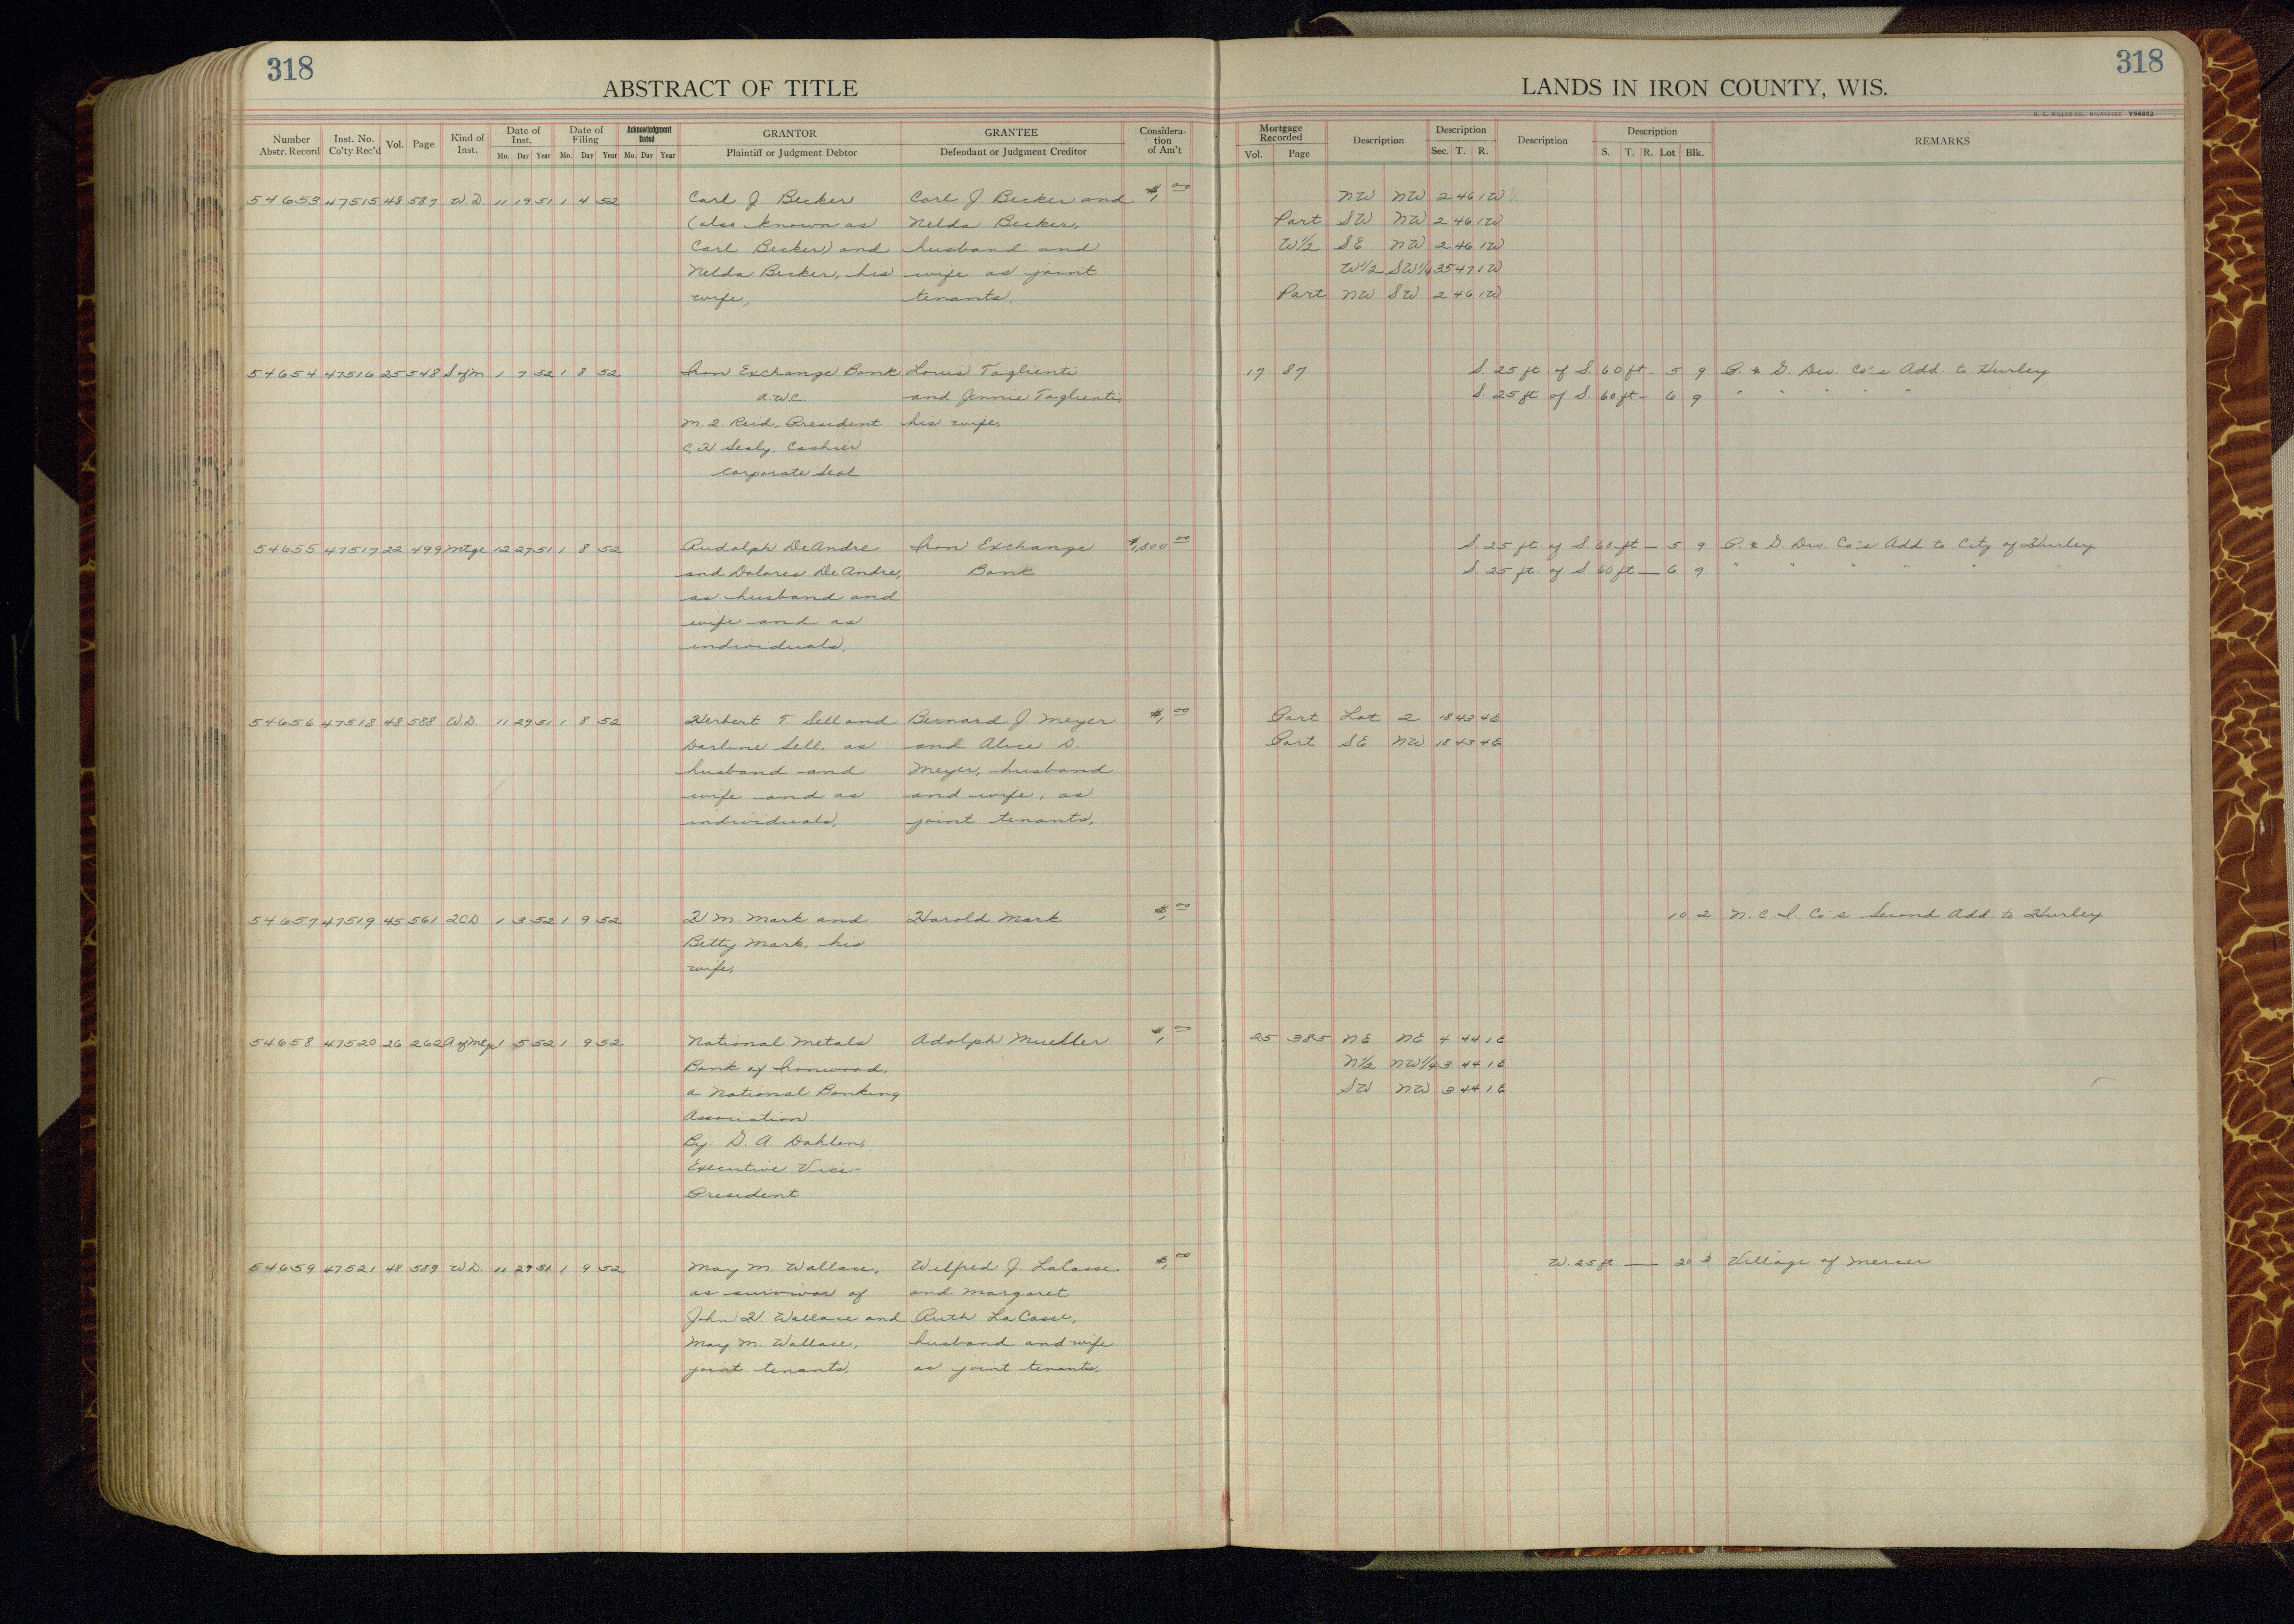 318
ABSTRACT OF TITLE
LANDS IN IRON COUNTY, WIS.
318
H. C. MILLER CO., MILWAUKEE Y56082
Number Abstr. Record Inst. No. Co'ty Rec'd Vol. Page Kind of Inst. Date of Inst. Mo. Day Year Date of Filing Mo. Day Year Acknowledgment Dated Mo. Day Year GRANTOR Plaintiff or Judgment Debtor GRANTEE Defendant or Judgment Creditor Considera-tion of Am't Mortgage Recorded Vol. Page Description Description Sec. T. R. Description Description S. T. R. Lot Blk. REMARKS
54653 47515 48 587 W.D. 11 19 51 1 4 52 Carl J. Becker Carl J. Becker and $1,00 NW NW 2 46 1W
(also known as Nelda Becker, Part SW NW 2 46 1W
Carl Becker) and husband and W1/2 SE NW 2 46 1W
Nelda Becker, his wife as joint W1/2 SW1/4 35 47 1W
wife, tenants, Part NW SW 2 46 1W
54654 47516 25 548 S of M 1 7 52 1 8 52 Iron Exchange Bank Louis Taglienti 17 87 S. 25 ft of S. 60 ft - 5 9 P. & G. Dev. Co's Add. to Hurley
A.W.C. and Jennie Taglienti, S. 25 ft of S. 60 ft - 6 9 " " " " "
Reid, President his wife,
Sealy, Cashier
Corporate Seal
54655 47517 22 499 Mtge 12 27 51 1 8 52 Rudolph DeAndre Iron Exchange $1,800 00 S. 25 ft of S. 60 ft — 5 9 P. & G. Dev. Co's Add to City of Hurley
and Dolores DeAndre, Bank S. 25 ft. of S 60 ft — 6 9 " " " " " "
as husband and
wife and as
individuals,
54656 47518 48 588 W.D. 11 29 51 1 8 52 Herbert T. Sell and Bernard J Meyer $1,00 Part Lot 2 18 43 4E
Darline Sell, as and Alice D. Part SE NW 18 43 4E
husband and Meyer, husband
wife and as and wife, as
individuals, joint tenants,
54657 47519 45 561 2CD 1 3 52 1 9 52 H M. Mark and Harold Mark $1,00 10 2 N. C I. Co's Second Add. to Hurley
Betty Mark, his
wife,
54658 47520 26 262 A of Mtge 1 5 52 1 9 52 National Metals Adolph Mueller $1,00 25 385 NE NE 4 44 1E
Bank of Ironwood, N1/2 NW1/4 3 44 1E
a National Banking SW NW 3 44 1E
Association
By: G. A. Dahlen,
Executive Vice-
President
54659 47521 48 589 W.D. 11 29 51 1 9 52 May M. Wallace, Wilfred J. LaCasse $1,00 W. 25 ft — 20 3 Village of Mercer
as survivor of and Margaret
John H. Wallace and Ruth LaCasse,
May M. Wallace, husband and wife
joint tenants, as joint tenants,